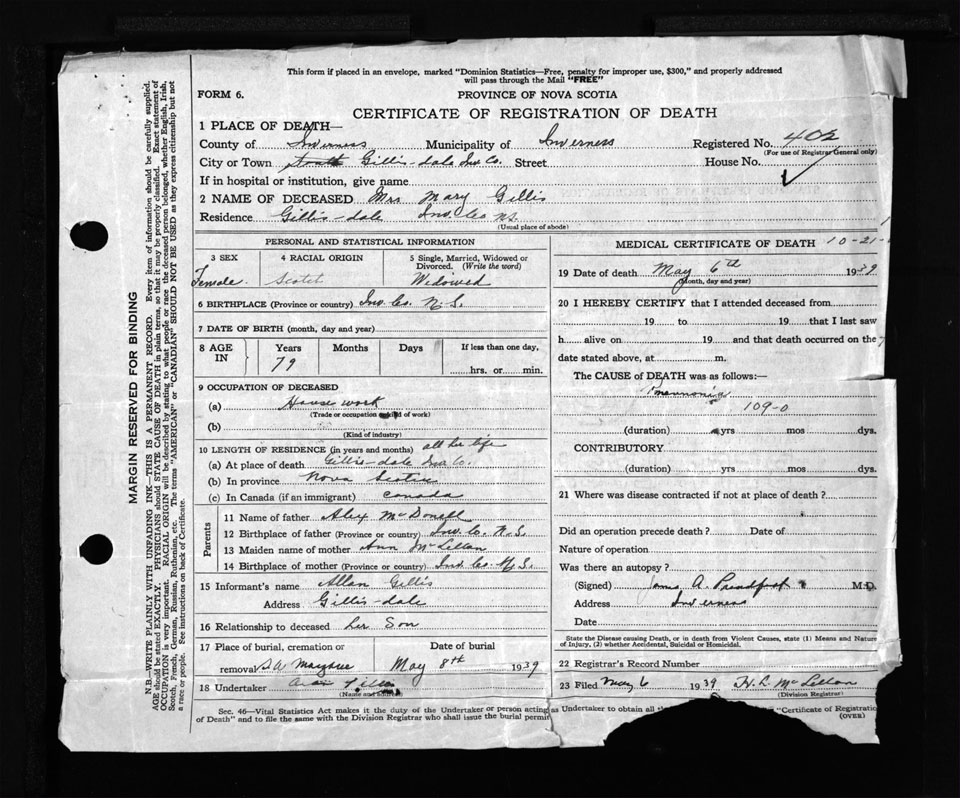 This form if placed in an envelope, marked "Dominion Statistics—Free, penalty for improper use, $300," and properly addressed
will pass through the Mail "FREE"
FORM 6. PROVINCE OF NOVA SCOTIA
CERTIFICATE OF REGISTRATION OF DEATH
1 PLACE OF DEATH—
County of Inverness Municipality of Inverness Registered No. 402
(For use of Registrar General only)
City or Town Gillis-dale Inv. Co. Street House No.
If in hospital or institution, give name
2 NAME OF DECEASED Mrs Mary Gillis
Residence Gillis-dale Inv. Co N.S.
(Usual place of abode)
MARGIN RESERVED FOR BINDING
N.B.—WRITE PLAINLY WITH UNFADING INK—THIS IS A PERMANENT RECORD. Every item of information should be carefully supplied.
AGE should be stated EXACTLY. PHYSICIANS should STATE CAUSE OF DEATH in plain terms, so that it may be properly classified. Exact statement of
OCCUPATION is very important. RACIAL ORIGIN will be described by stating to what people or race the deceased person belonged, whether English, Irish,
Scotch, French, German, Russian, Ruthenian, etc. The terms "AMERICAN" or "CANADIAN" SHOULD NOT BE USED as they express citizenship but not
a race or people. See instructions on back of Certificate.
PERSONAL AND STATISTICAL INFORMATION
3 SEX 4 RACIAL ORIGIN 5 Single, Married, Widowed or
Divorced. (Write the word)
Female Scotch Widowed
6 BIRTHPLACE (Province or country) Inv. Co. N.S.
7 DATE OF BIRTH (month, day and year)
8 AGE IN Years Months Days If less than one day,
79 hrs. or min.
9 OCCUPATION OF DECEASED
(a) House work
(Trade or occupation kind of work)
(b)
(Kind of industry)
10 LENGTH OF RESIDENCE (in years and months) all her life
(a) At place of death Gillis-dale Inv Co.
(b) In province Nova Scotia
(c) In Canada (if an immigrant) Canada
Parents
11 Name of father Alex McDonell
12 Birthplace of father (Province or country) Inv. Co. N.S.
13 Maiden name of mother Ann McLellan
14 Birthplace of mother (Province or country) Inv. Co. N.S.
15 Informant's name Allan Gillis
Address Gillis-dale
16 Relationship to deceased her Son
17 Place of burial, cremation or Date of burial
removal S.W Margaree May 8th 1939
18 Undertaker
MEDICAL CERTIFICATE OF DEATH 10-21-
19 Date of death May 6th 1939
(Month, day and year)
20 I HEREBY CERTIFY that I attended deceased from
19 to 19 that I last saw
h alive on 19 and that death occurred on the
date stated above, at m.
The CAUSE of DEATH was as follows:—
Pneumonia
109-0
(duration) yrs mos dys.
CONTRIBUTORY
(duration) yrs mos dys.
21 Where was disease contracted if not at place of death?
Did an operation precede death? Date of
Nature of operation
Was there an autopsy?
(Signed) James A. Proudfoot M.D.
Address Inverness
Date
State the Disease causing Death, or in death from Violent Causes, state (1) Means and Nature
of Injury, (2) whether Accidental, Suicidal or Homicidal.
22 Registrar's Record Number
23 Filed May 6 1939 H.L McLellan
(Division Registrar)
Sec. 46—Vital Statistics Act makes it the duty of the Undertaker or person acting as Undertaker to obtain all "Certificate of Registration
of Death" and to file the same with the Division Registrar who shall issue the burial permit (OVER)